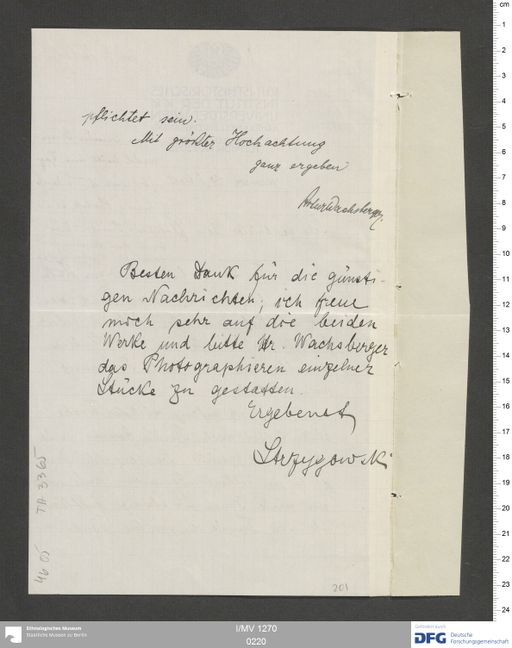 pflichtet sein.
Mit größter Hochachtung
ganz ergeben
Wachsberger
Besten Dank für die günsti-
gen Nachrichten; ich freue
mich sehr auf die beiden
Werke und bitte Hr. Wachsberger
das Photographieren einzelner
Stücke zu gestatten.
Ergebenst
Strzygowski
TA 3365
46 05
201
cm
1
2
3
4
5
6
7
8
9
10
11
12
13
14
15
16
17
18
19
20
21
22
23
24
Ethnologisches Museum
Staatliche Museen zu Berlin
I/MV 1270
0220
Gefördert durch
DFG Deutsche
Forschungsgemeinschaft